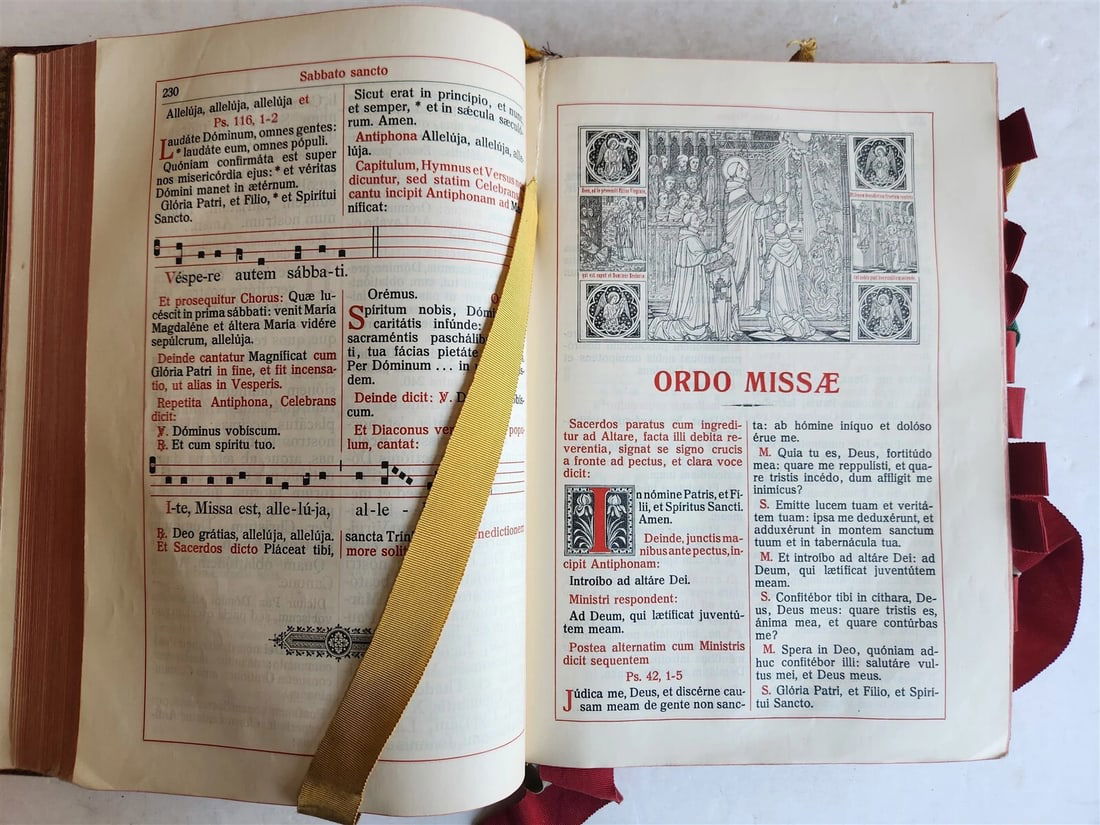 Sabbato sancto
230
Allelúja, allelúja, allelúja et
Ps. 116, 1-2
Laudáte Dóminum, omnes gentes:
* laudáte eum, omnes pópuli.
Quóniam confirmáta est super
nos misericórdia ejus: * et véritas
Dómini manet in ætérnum.
Glória Patri, et Fílio, * et Spirítui
Sancto.
Sicut erat in princípio, et nunc
et semper, * et in sǽcula sæculó-
rum. Amen.
Antiphona Allelúja, allelúja, alle-
lúja.
Capitulum, Hymnus et Versus
dicuntur, sed statim Celebrans
cantu incipit Antiphonam ad
nificat:
Véspe-re autem sábba-ti.
Et prosequitur Chorus: Quæ lu-
céscit in prima sábbati: venit María
Magdaléne et áltera María vidére
sepúlcrum, allelúja.
Deinde cantatur Magníficat cum
Glória Patri in fine, et fit incensa-
tio, ut alias in Vesperis.
Repetita Antiphona, Celebrans
dicit:
℣. Dóminus vobíscum.
℟. Et cum spíritu tuo.
Orémus.
Spíritum nobis, Dómi
caritátis infúnde:
sacraméntis paschálib
ti, tua fácias pietáte
Per Dóminum ... in
dem.
Deinde dicit: ℣. D
cum.
Et Diaconus ver popu-
lum, cantat:
I-te, Missa est, alle-lú-ja, al-le -
℟. Deo grátias, allelúja, allelúja.
Et Sacerdos dicto Pláceat tibi,
sancta Trin nedictionem
more solit
ORDO MISSÆ
Sacerdos paratus cum ingredi-
tur ad Altare, facta illi debita re-
verentia, signat se signo crucis
a fronte ad pectus, et clara voce
dicit:
In nómine Patris, et Fí-
lii, et Spíritus Sancti.
Amen.
Deinde, junctis ma-
nibus ante pectus, in-
cipit Antiphonam:
Introíbo ad altáre Dei.
Ministri respondent:
Ad Deum, qui lætíficat juventú-
tem meam.
Postea alternatim cum Ministris
dicit sequentem
Ps. 42, 1-5
Júdica me, Deus, et discérne cau-
sam meam de gente non sanc-
ta: ab hómine iníquo et dolóso
érue me.
M. Quia tu es, Deus, fortitúdo
mea: quare me reppulísti, et qua-
re tristis incédo, dum afflígit me
inimícus?
S. Emítte lucem tuam et veritá-
tem tuam: ipsa me deduxérunt, et
adduxérunt in montem sanctum
tuum et in tabernácula tua.
M. Et introíbo ad altáre Dei: ad
Deum, qui lætíficat juventútem
meam.
S. Confitébor tibi in cíthara, De-
us, Deus meus: quare tristis es,
ánima mea, et quare contúrbas
me?
M. Spera in Deo, quóniam ad-
huc confitébor illi: salutáre vul-
tus mei, et Deus meus.
S. Glória Patri, et Fílio, et Spirí-
tui Sancto.